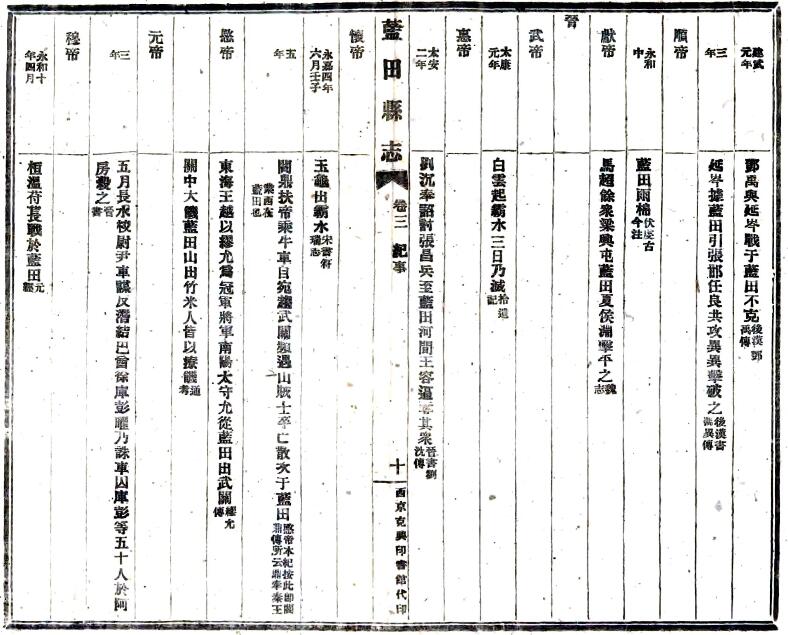 建武元年 鄧禹與延岑戰于藍田不克後漢鄧禹傳
三年 延岑據藍田引張邯任良共攻異異擊破之後漢書馮異傳
順帝
永和中 藍田雨桶伏皮古今注
獻帝 馬超餘衆梁興屯藍田夏侯淵擊平之魏志
晉
武帝
太康元年 白雲起霸水三日乃滅拾遺記
惠帝
太安二年 劉沉奉詔討張昌兵至藍田河間王容逼奪其衆晉書劉沈傳
藍田縣志 卷三 紀事 十 西京克興印書館代印
懷帝
永嘉四年六月壬子 玉龜出霸水宋書符瑞志
五年 閻鼎扶帝乘牛車自宛趨武關頻遇山賊士卒亡散次于藍田愍帝本紀按此即閻鼎傳所云鼎奉秦王業西在藍田也
愍帝 東海王越以繆允爲冠軍將軍南陽太守允從藍田出武關繆允傳
關中大饑藍田山出竹米人皆以療饑通考
元帝
三年 五月長水校尉尹車謀反潛結巴酋徐庫彭曜乃誅車囚庫彭等五十人於阿房殺之晉書
穆帝
永和十年四月 桓溫苻萇戰於藍田元經